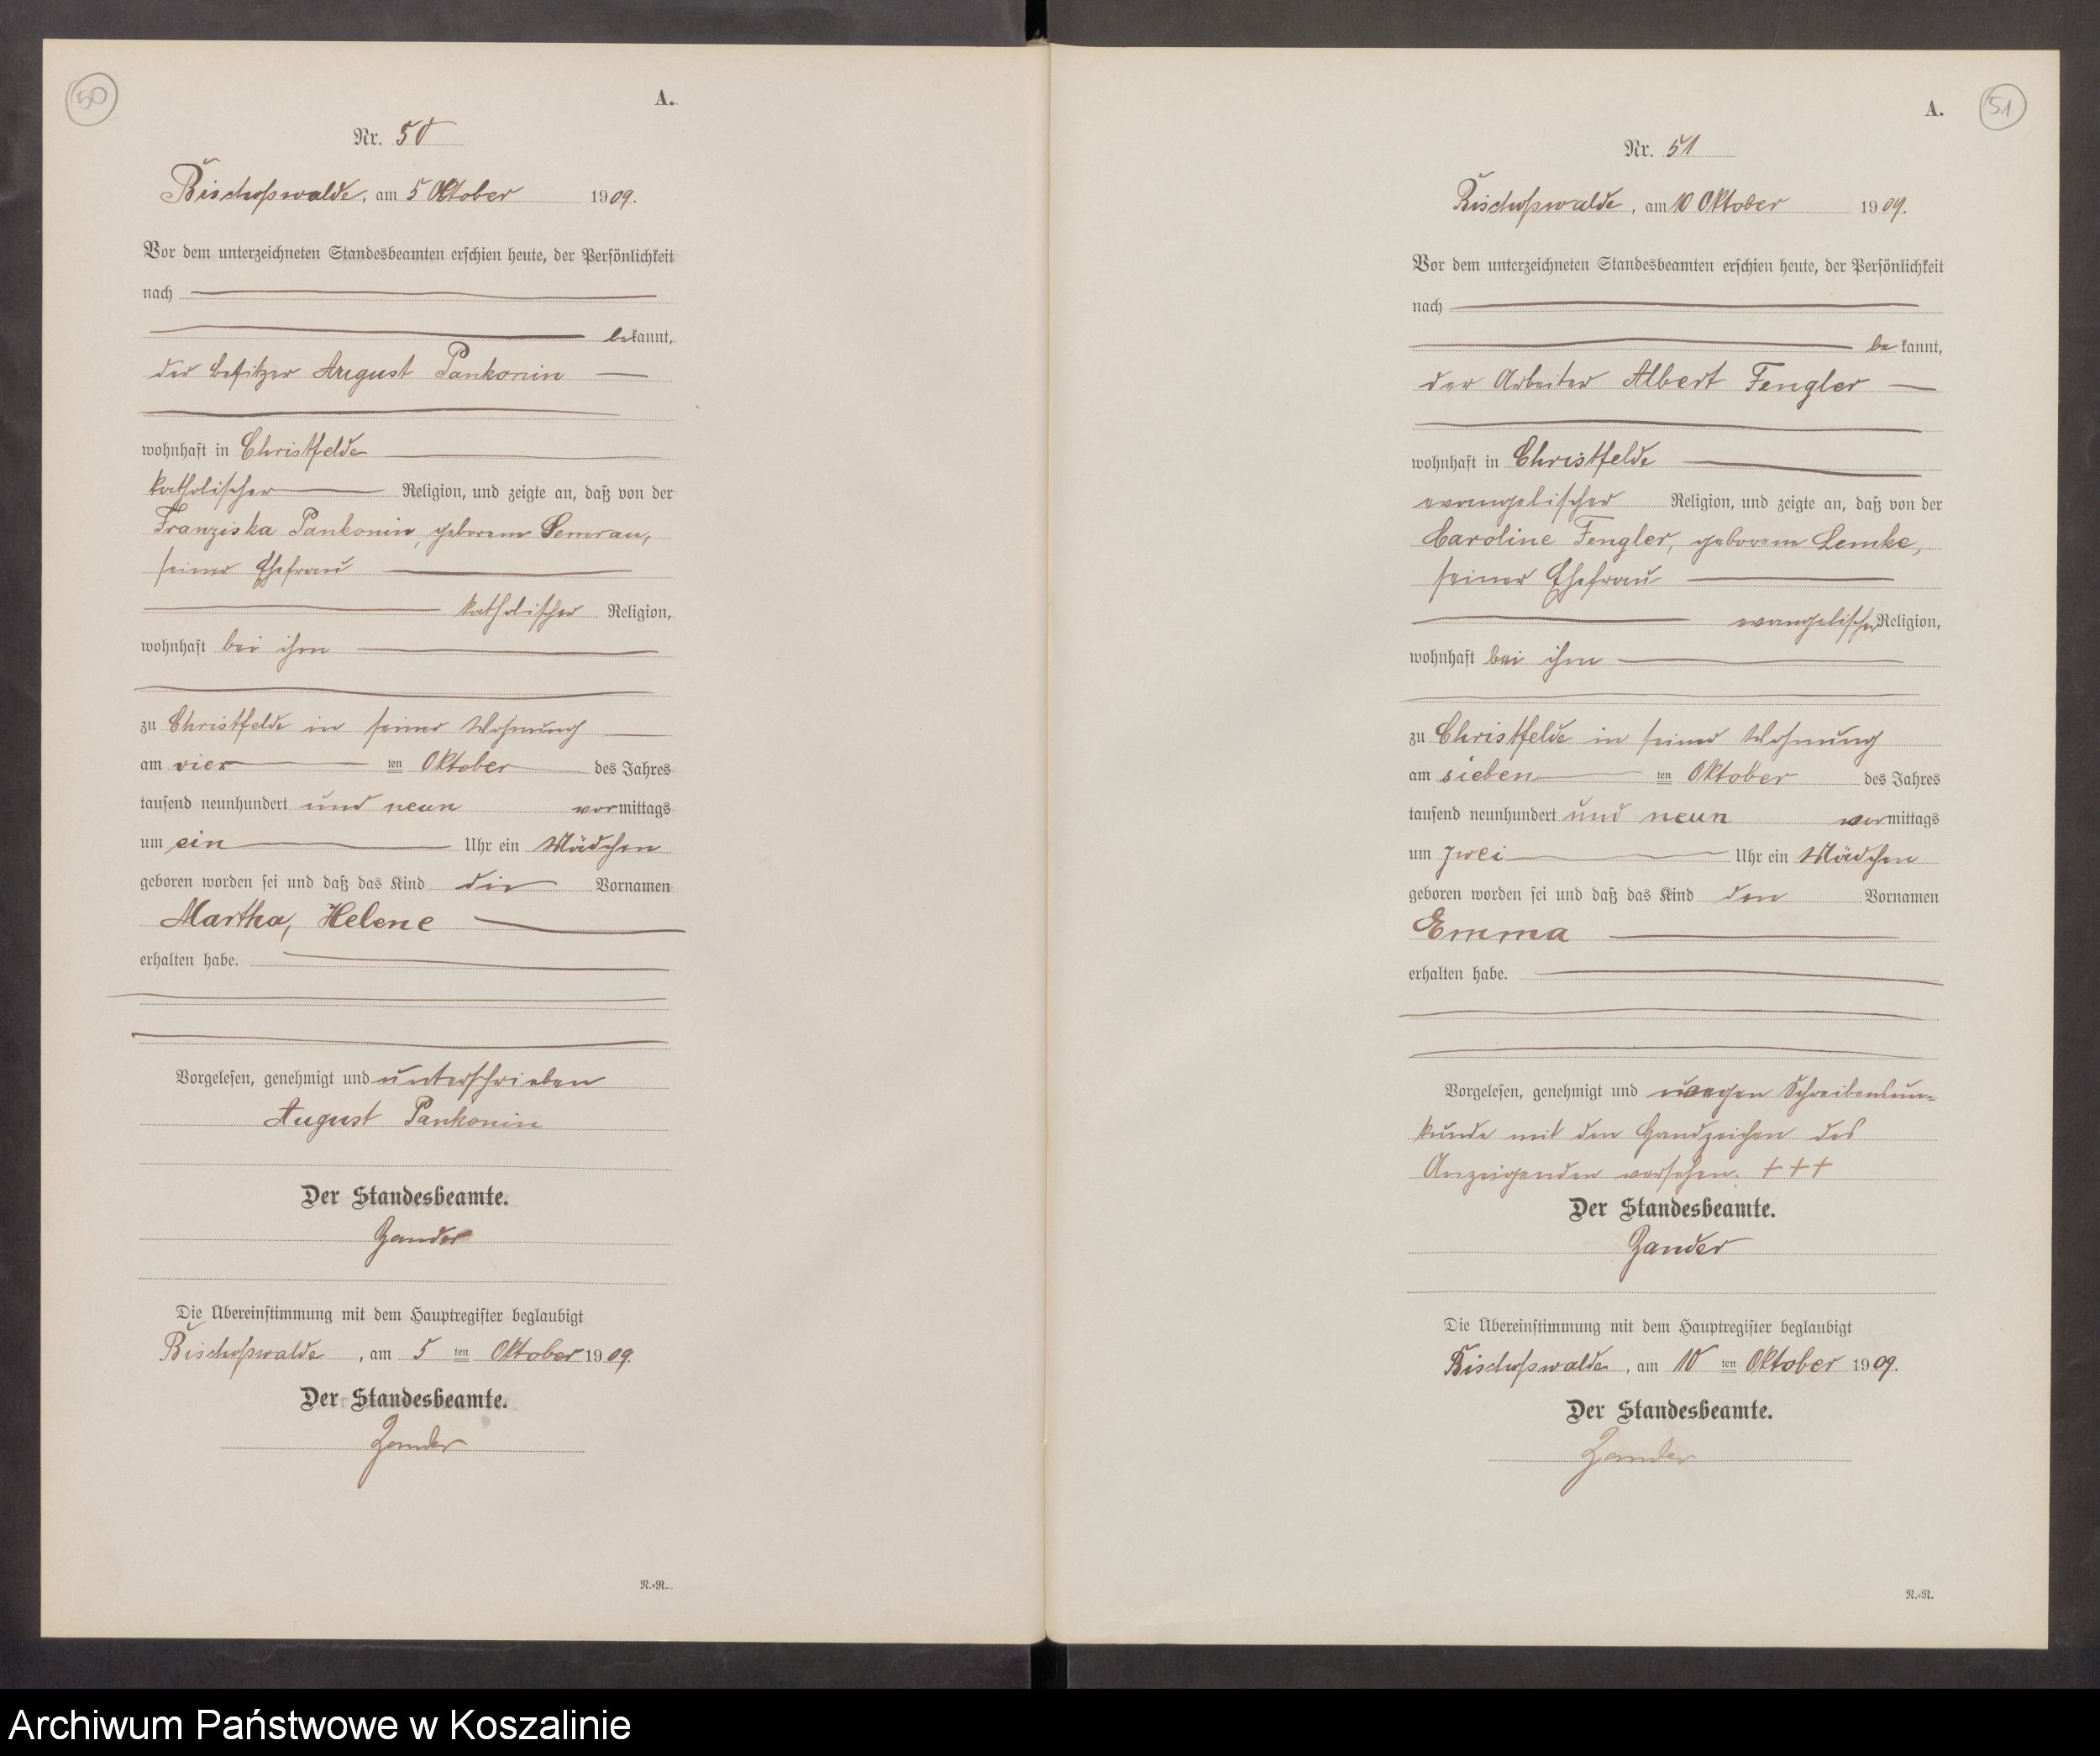 50
A.
Nr. 50
Bischofswalde, am 5 Oktober 1909.
Vor dem unterzeichneten Standesbeamten erschien heute, der Persönlichkeit
nach
bekannt,
der Besitzer August Pankonin
wohnhaft in Christfelde
katholischer Religion, und zeigte an, daß von der
Franziska Pankonin, geborenen Semrau,
seiner Ehefrau
katholischer Religion,
wohnhaft bei ihm
zu Christfelde in seiner Wohnung
am vier ten Oktober des Jahres
tausend neunhundert und neun vormittags
um ein Uhr ein Mädchen
geboren worden sei und daß das Kind die Vornamen
Martha, Helene
erhalten habe.
Vorgelesen, genehmigt und unterschrieben
August Pankonin
Der Standesbeamte.
Zander
Die Übereinstimmung mit dem Hauptregister beglaubigt
Bischofswalde, am 5 ten Oktober 1909.
Der Standesbeamte.
Zander
N.=R.
51
A.
Nr. 51
Bischofswalde, am 10 Oktober 1909.
Vor dem unterzeichneten Standesbeamten erschien heute, der Persönlichkeit
nach
bekannt,
der Arbeiter Albert Fengler
wohnhaft in Christfelde
evangelischer Religion, und zeigte an, daß von der
Caroline Fengler, geborenen Lemke,
seiner Ehefrau
evangelischer Religion,
wohnhaft bei ihm
zu Christfelde in seiner Wohnung
am sieben ten Oktober des Jahres
tausend neunhundert und neun vormittags
um zwei Uhr ein Mädchen
geboren worden sei und daß das Kind den Vornamen
Emma
erhalten habe.
Vorgelesen, genehmigt und wegen Schreibensun=
kunde mit den Handzeichen des
Anzeigenden versehen. +++
Der Standesbeamte.
Zander
Die Übereinstimmung mit dem Hauptregister beglaubigt
Bischofswalde, am 10 ten Oktober 1909.
Der Standesbeamte.
Zander
N.=R.
Archiwum Państwowe w Koszalinie